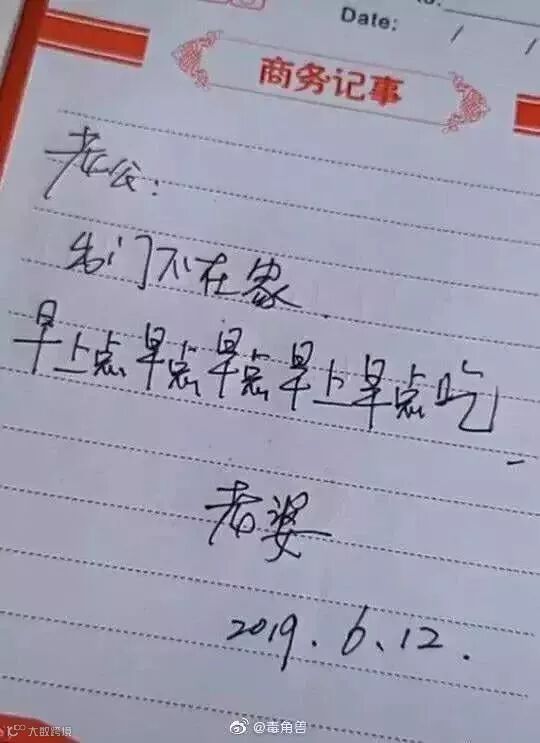 Date: / /
商务记事
老公:
出门不在家
早上点早点早点早上早点吃
老婆
2019.6.12.
大数跨境
@毒角兽